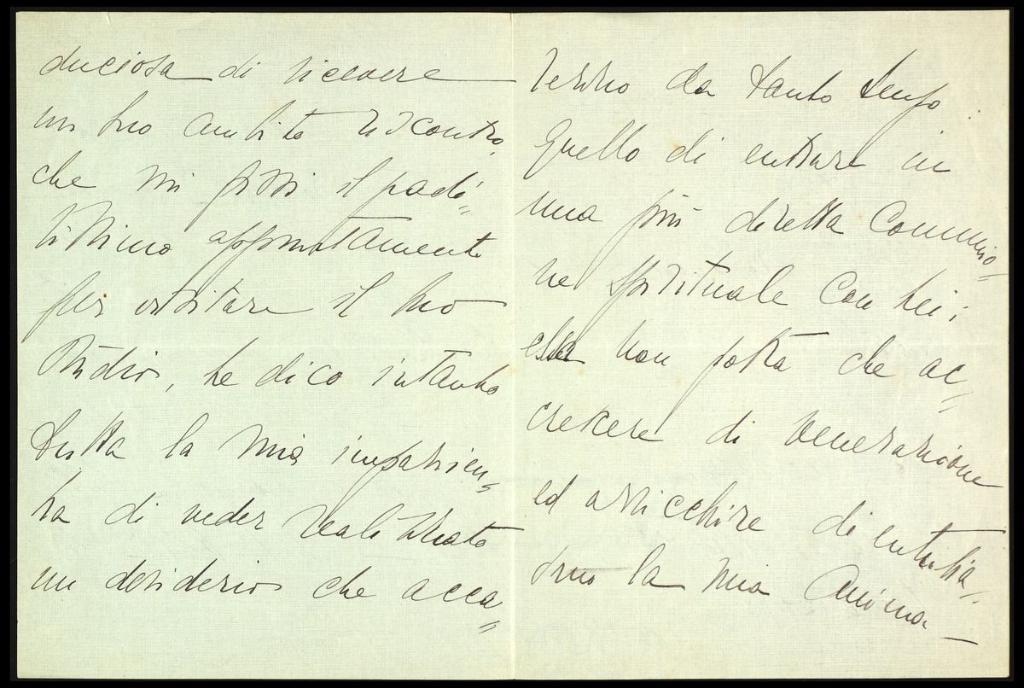 duciosa di ricevere
un suo ambito riscontro,
che mi fissi il gradi=
tissimo appuntamento
per visitare il suo
Studio, Le dico intanto
tutta la mia impazien=
za di veder realizzato
un desiderio che acca=
rezzo da tanto tempo:
Quello di entrare in
una più diretta Comunio=
ne spirituale con Lei;
essa non potrà che ac=
crescere di venerazione
ed arricchire di entusia=
smo la mia Anima —